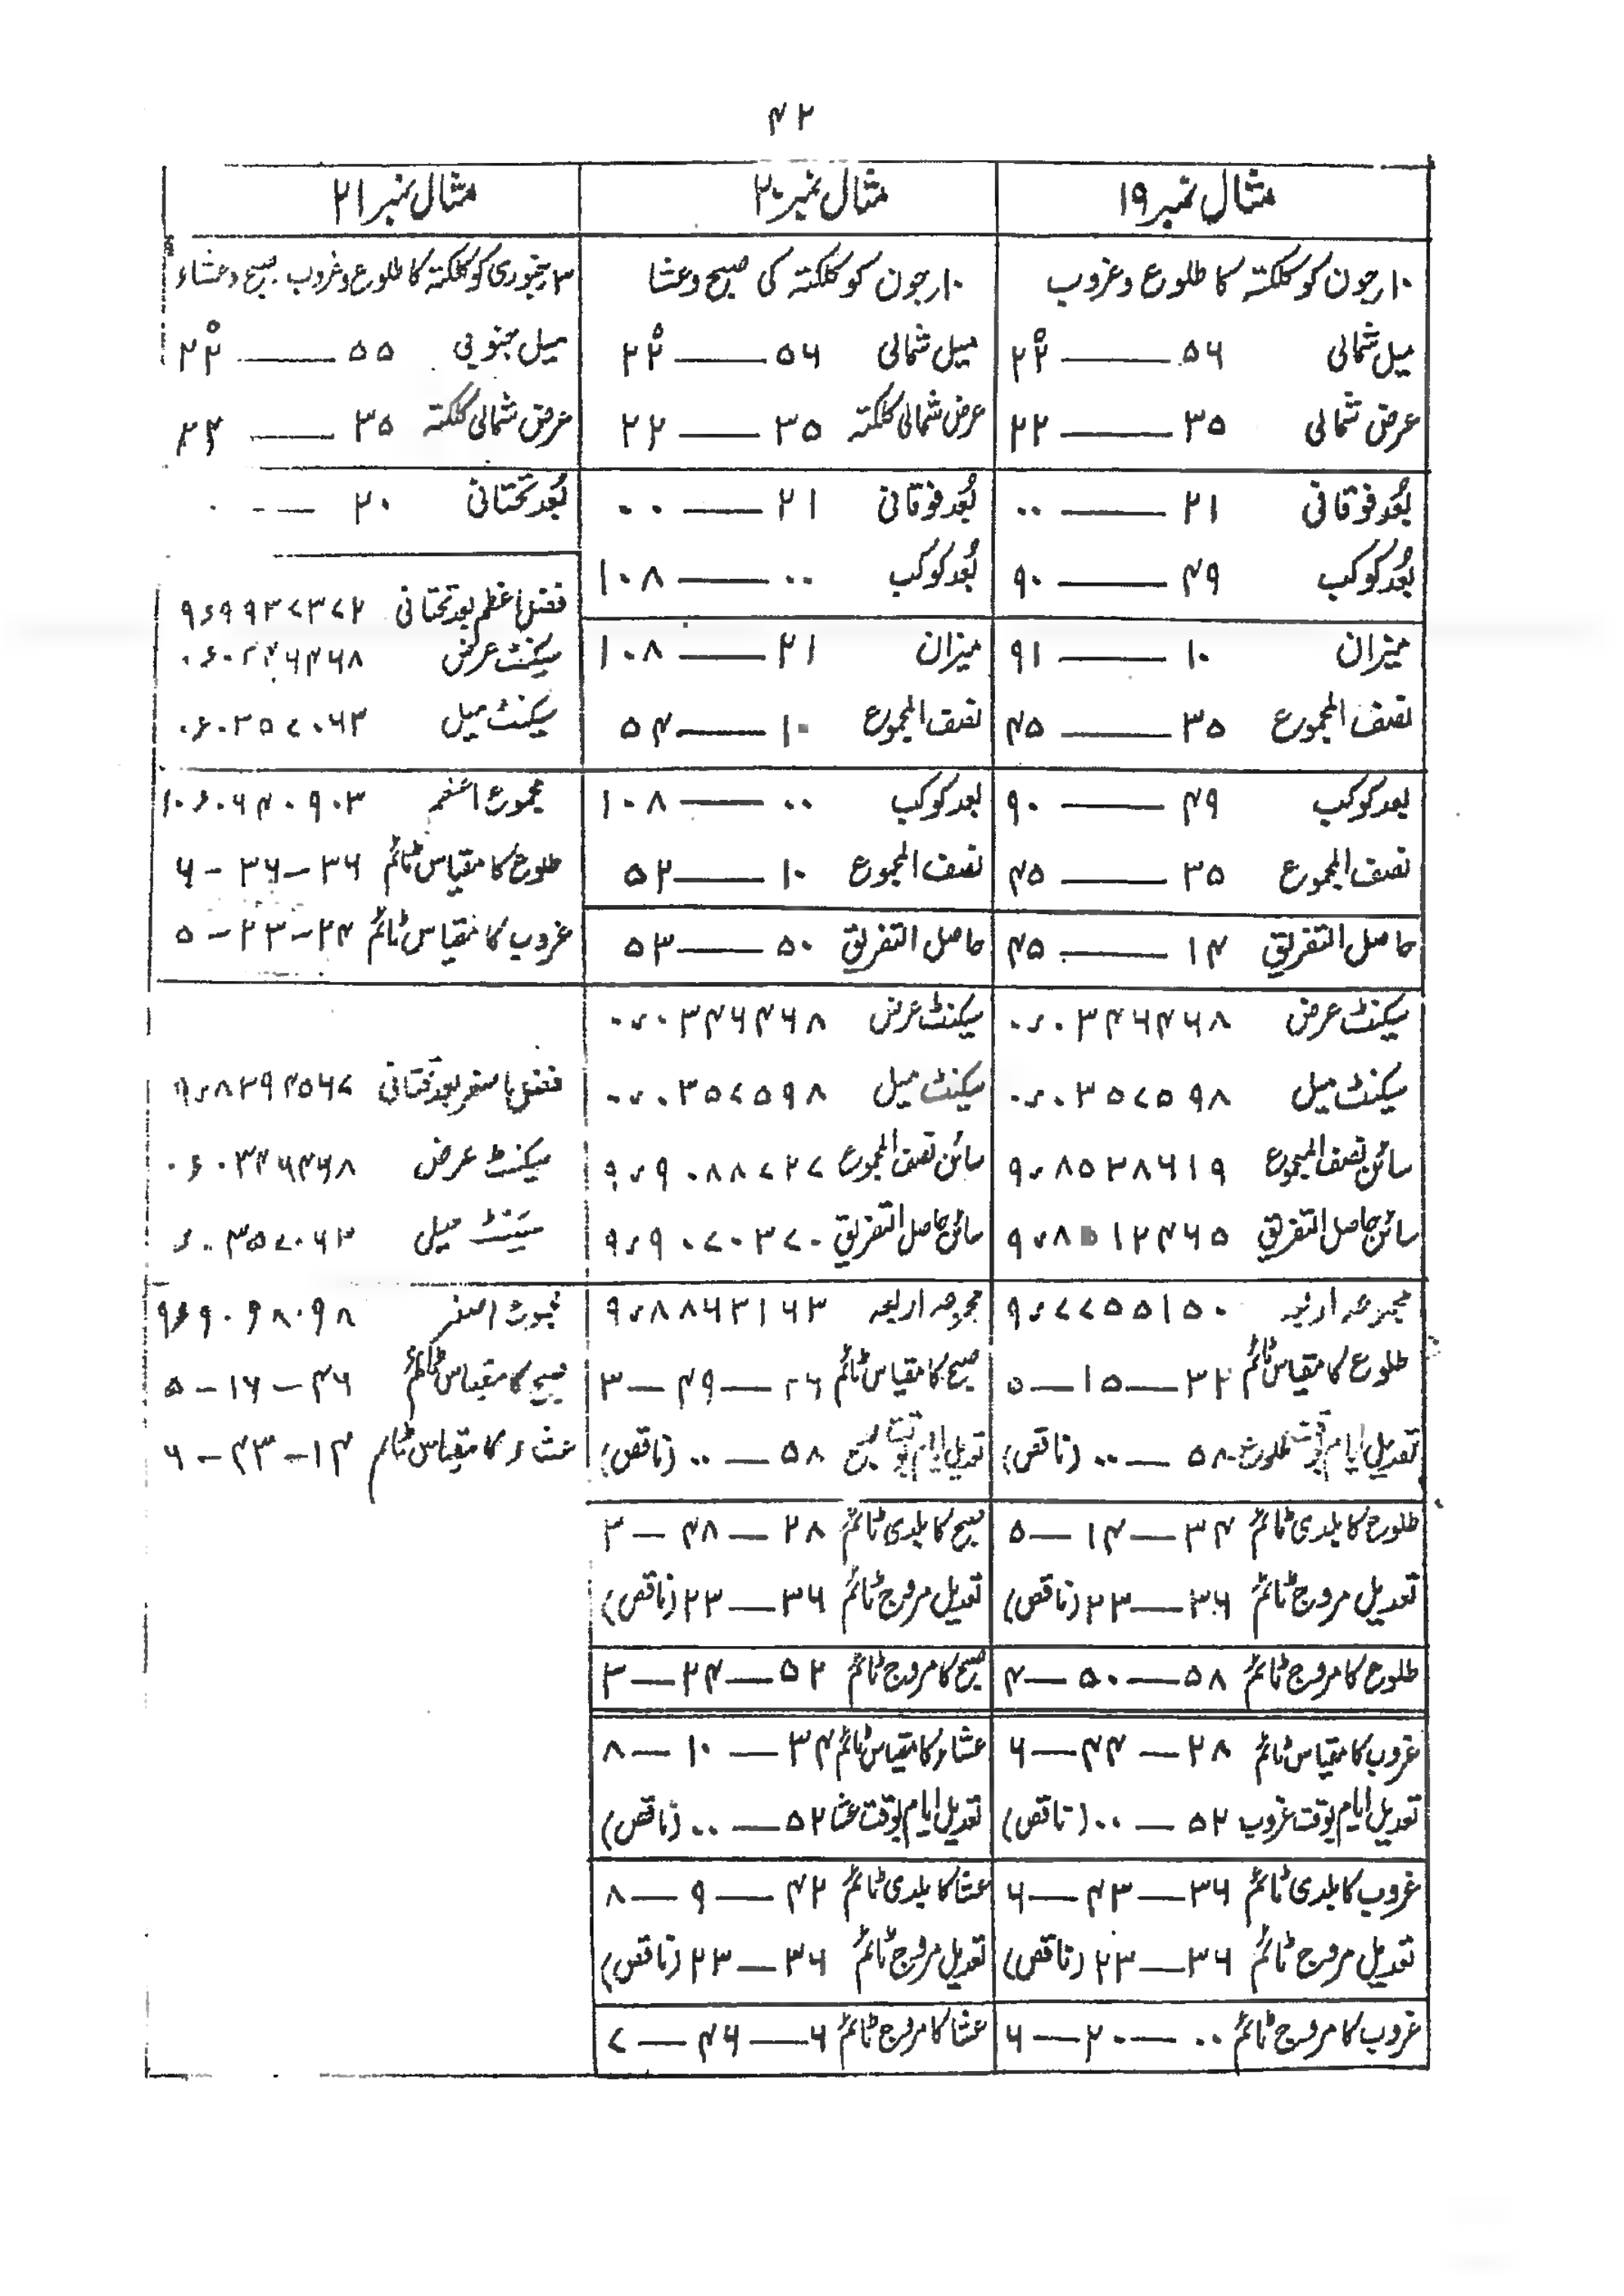 ۴۲
مثال نمبر ۱۹
۱۰ر جون کو کلکتہ کا طلوع و غروب
میل شمالی ۵۶ — ۲۲°
عرض شمالی ۳۵ — ۲۲
بُعد فوقانی ۲۱ — ۰۰
بُعد کوکب ۴۹ — ۹۰
میزان ۱۰ — ۹۱
نصف المجموع ۳۵ — ۴۵
بعد کوکب ۴۹ — ۹۰
نصف المجموع ۳۵ — ۴۵
حاصل التفریق ۱۴ — ۴۵
سیکنٹ عرض ۰ء۰۳۴۶۴۶۸
سیکنٹ میل ۰ء۰۳۵۷۵۹۸
سائن نصف المجموع ۹ء۸۵۳۸۶۱۹
سائن حاصل التفریق ۹ء۸۵۱۲۴۶۵
مجموعہ اربعہ ۹ء۷۷۵۵۱۵۰
طلوع کا مقیاس ٹائم ۳۲ — ۱۵ — ۵
تعدیل ایام بوقت طلوع ۵۸ — ۰۰ (ناقص)
طلوع کا بلدی ٹائم ۳۴ — ۱۴ — ۵
تعدیل مروج ٹائم ۳۶ — ۲۳ (ناقص)
طلوع کا مروج ٹائم ۵۸ — ۵۰ — ۴
غروب کا مقیاس ٹائم ۲۸ — ۴۴ — ۶
تعدیل ایام بوقت غروب ۵۲ — ۰۰ (ناقص)
غروب کا بلدی ٹائم ۳۶ — ۴۳ — ۶
تعدیل مروج ٹائم ۳۶ — ۲۳ (ناقص)
غروب کا مروج ٹائم ۰۰ — ۲۰ — ۶
مثال نمبر ۲۰
۱۰ر جون کو کلکتہ کی صبح و عشا
میل شمالی ۵۶ — ۲۲°
عرض شمالی کلکتہ ۳۵ — ۲۲
بُعد فوقانی ۲۱ — ۰۰
بُعد کوکب ۰۰ — ۱۰۸
میزان ۲۱ — ۱۰۸
نصف المجموع ۱۰ — ۵۴
بعد کوکب ۰۰ — ۱۰۸
نصف المجموع ۱۰ — ۵۲
حاصل التفریق ۵۰ — ۵۳
سیکنٹ عرض ۰ء۰۳۴۶۴۶۸
سیکنٹ میل ۰ء۰۳۵۷۵۹۸
سائن نصف المجموع ۹ء۹۰۸۸۷۲۷
سائن حاصل التفریق ۹ء۹۰۷۰۳۷۰
مجموعہ اربعہ ۹ء۸۸۶۳۱۶۳
صبح کا مقیاس ٹائم ۲۶ — ۴۹ — ۳
تعدیل ایام بوقت صبح ۵۸ — ۰۰ (ناقص)
صبح کا بلدی ٹائم ۲۸ — ۴۸ — ۳
تعدیل مروج ٹائم ۳۶ — ۲۳ (ناقص)
صبح کا مروج ٹائم ۵۲ — ۲۴ — ۳
عشاء کا مقیاس ٹائم ۳۴ — ۱۰ — ۸
تعدیل ایام بوقت عشا ۵۲ — ۰۰ (ناقص)
عشا کا بلدی ٹائم ۴۲ — ۹ — ۸
تعدیل مروج ٹائم ۳۶ — ۲۳ (ناقص)
عشا کا مروج ٹائم ۶ — ۴۶ — ۷
مثال نمبر ۲۱
۳ر جنوری کو کلکتہ کا طلوع و غروب صبح و عشاء
میل جنوبی ۵۵ — ۲۲°
عرض شمالی کلکتہ ۳۵ — ۲۲
بُعد تحتانی ۲۰ — ۰
فضل اعظم بعد تحتانی ۹ء۹۹۳۷۳۷۲
سیکنٹ عرض ۰ء۰۳۴۶۴۶۸
سیکنٹ میل ۰ء۰۳۵۷۰۶۳
مجموع اعظم ۱۰ء۰۶۴۰۹۰۳
طلوع کا مقیاس ٹائم ۳۶ – ۳۶ – ۶
غروب کا مقیاس ٹائم ۲۴ – ۲۳ – ۵
فضل اصغر بعد تحتانی ۹ء۸۳۹۴۵۶۷
سیکنٹ عرض ۰ء۰۳۴۶۴۶۸
میل ء۰۳۵۷۰۶۳
اصغر ۹ء۹۰۹۸۰۹۸
صبح کا مقیاس ٹائم ۴۶ – ۱۶ – ۵
عشاء کا مقیاس ٹائم ۱۴ – ۴۳ – ۶